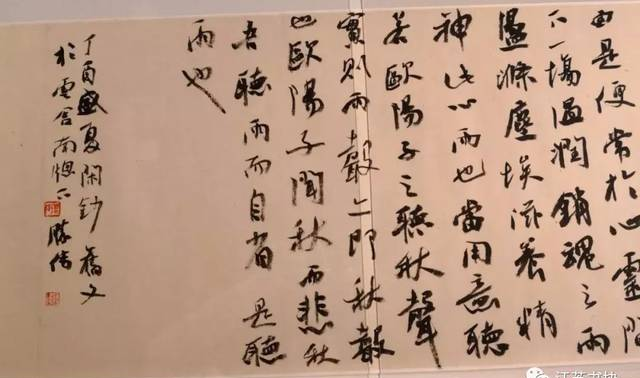 由是便常於心靈間
下一場溫潤銷魂之雨
盪滌塵埃滋養精
神此心雨也當用意聽
若歐陽子之聽秋聲
實則雨聲亦即秋聲
也歐陽子聞秋而悲秋
吾聽雨而自省是聽
雨也
丁酉盛夏閑鈔舊文
於雲舍南窗下
勝偉
江蘇书协